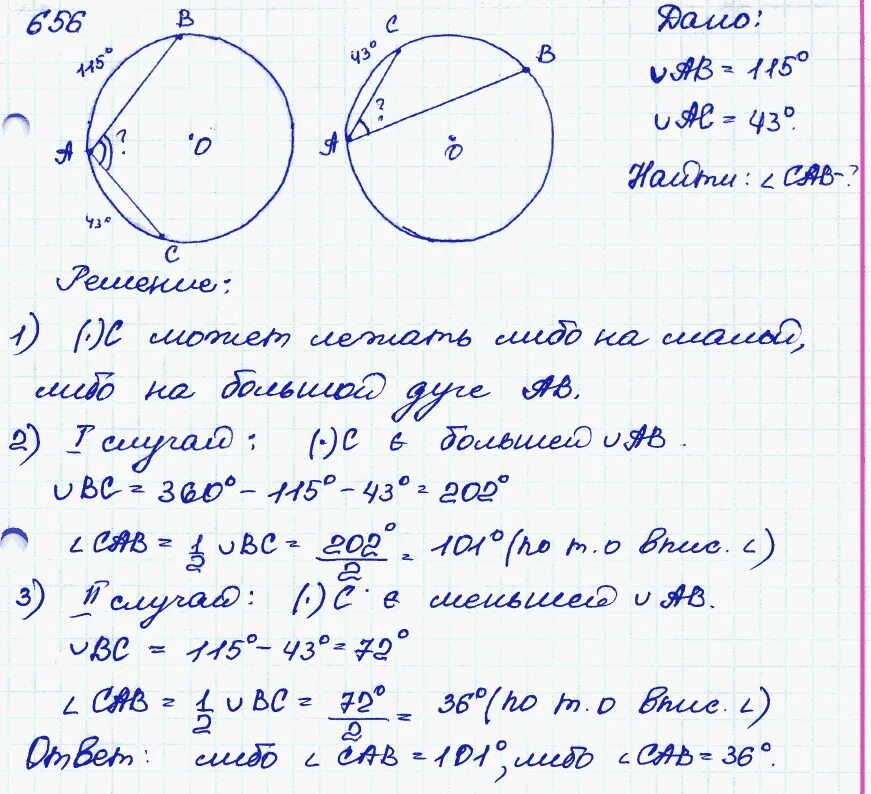 656
B
115°
A
?
O
43°
C
C
43°
B
?
A
O
Дано:
∪AB = 115°
∪AC = 43°.
Найти: ∠CAB-?
Решение:
1) (·)C может лежать либо на малой,
либо на большой дуге AB.
2) I случай: (·)C ∈ большей ∪AB.
∪BC = 360° - 115° - 43° = 202°
∠CAB = 1/2 ∪BC = 202°/2 = 101° (по т. о впис. ∠)
3) II случай: (·)C ∈ меньшей ∪AB.
∪BC = 115° - 43° = 72°
∠CAB = 1/2 ∪BC = 72°/2 = 36° (по т. о впис. ∠)
Ответ: либо ∠CAB = 101°, либо ∠CAB = 36°.